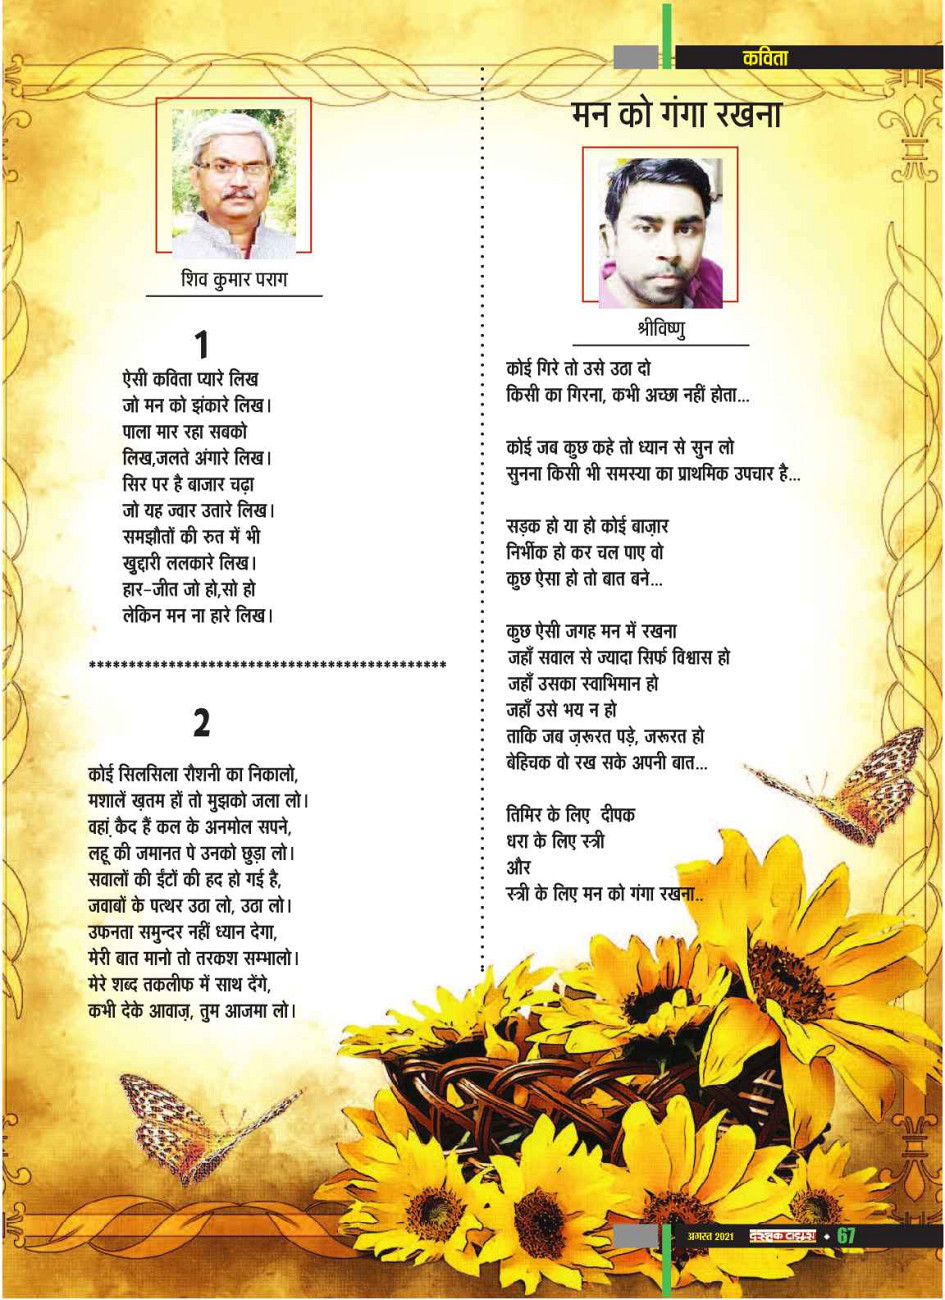 कविता
शिव कुमार पराग
1
ऐसी कविता प्यारे लिख
जो मन को झंकारे लिख।
पाला मार रहा सबको
लिख,जलते अंगारे लिख।
सिर पर है बाजार चढ़ा
जो यह ज्वार उतारे लिख।
समझौतों की रुत में भी
खुद्दारी ललकारे लिख।
हार-जीत जो हो,सो हो
लेकिन मन ना हारे लिख।
*********************************************
2
कोई सिलसिला रौशनी का निकालो,
मशालें ख़तम हों तो मुझको जला लो।
वहां कैद हैं कल के अनमोल सपने,
लहू की जमानत पे उनको छुड़ा लो।
सवालों की ईंटों की हद हो गई है,
जवाबों के पत्थर उठा लो, उठा लो।
उफनता समुन्दर नहीं ध्यान देगा,
मेरी बात मानो तो तरकश सम्भालो।
मेरे शब्द तकलीफ में साथ देंगे,
कभी देके आवाज़, तुम आजमा लो।
मन को गंगा रखना
श्रीविष्णु
कोई गिरे तो उसे उठा दो
किसी का गिरना, कभी अच्छा नहीं होता...
कोई जब कुछ कहे तो ध्यान से सुन लो
सुनना किसी भी समस्या का प्राथमिक उपचार है...
सड़क हो या हो कोई बाज़ार
निर्भीक हो कर चल पाए वो
कुछ ऐसा हो तो बात बने...
कुछ ऐसी जगह मन में रखना
जहाँ सवाल से ज्यादा सिर्फ विश्वास हो
जहाँ उसका स्वाभिमान हो
जहाँ उसे भय न हो
ताकि जब ज़रूरत पड़े, जरूरत हो
बेहिचक वो रख सके अपनी बात...
तिमिर के लिए दीपक
धरा के लिए स्त्री
और
स्त्री के लिए मन को गंगा रखना..
अगस्त 2021 दस्तक टाइम्स ◆ 67